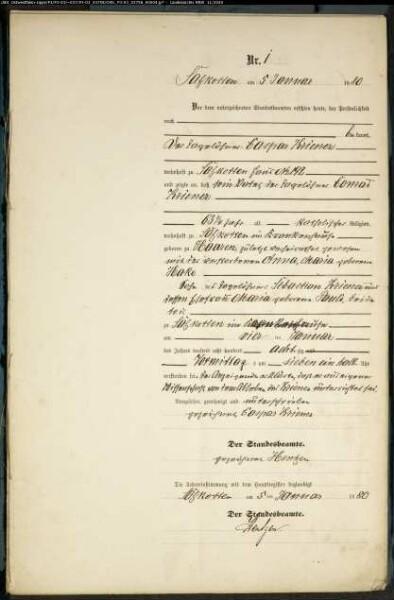 Nr. 1
Salzkotten am 5 Januar 1880
Vor dem unterzeichneten Standesbeamten erschien heute, der Persönlichkeit
nach
kannt,
der Tagelöhner Caspar Kriener
wohnhaft zu Salzkotten Haus No
und zeigte an, daß sein Vater, der Tagelöhner Conrad
Kriener
63 Jahre alt, katholischer Religion,
wohnhaft zu Salzkotten im Krankenhause
geboren zu Haaren, zuletzt verheirathet gewesen
mit der verstorbenen Anna Maria geborene
Hake
Sohn des Tagelöhners Sebastian Kriener und
dessen Ehefrau Maria geborene
zu Salzkotten im
am vier ten Januar
des Jahres tausend acht hundert acht zig
Vormittags um sieben ein halb Uhr
verstorben sei, der Anzeigende erklärte, daß er aus eigener
Wissenschaft von dem Ableben des Kriener unterrichtet sei.
Vorgelesen, genehmigt und unterschrieben
gezeichnet Caspar Kriener
Der Standesbeamte.
gezeichnet
Die Uebereinstimmung mit dem Hauptregister beglaubigt
Salzkotten am 5 ten Januar 1880
Der Standesbeamte.